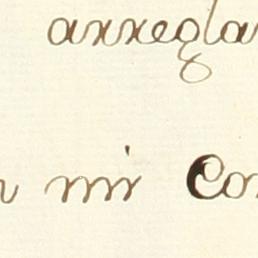 arregla
mi Con